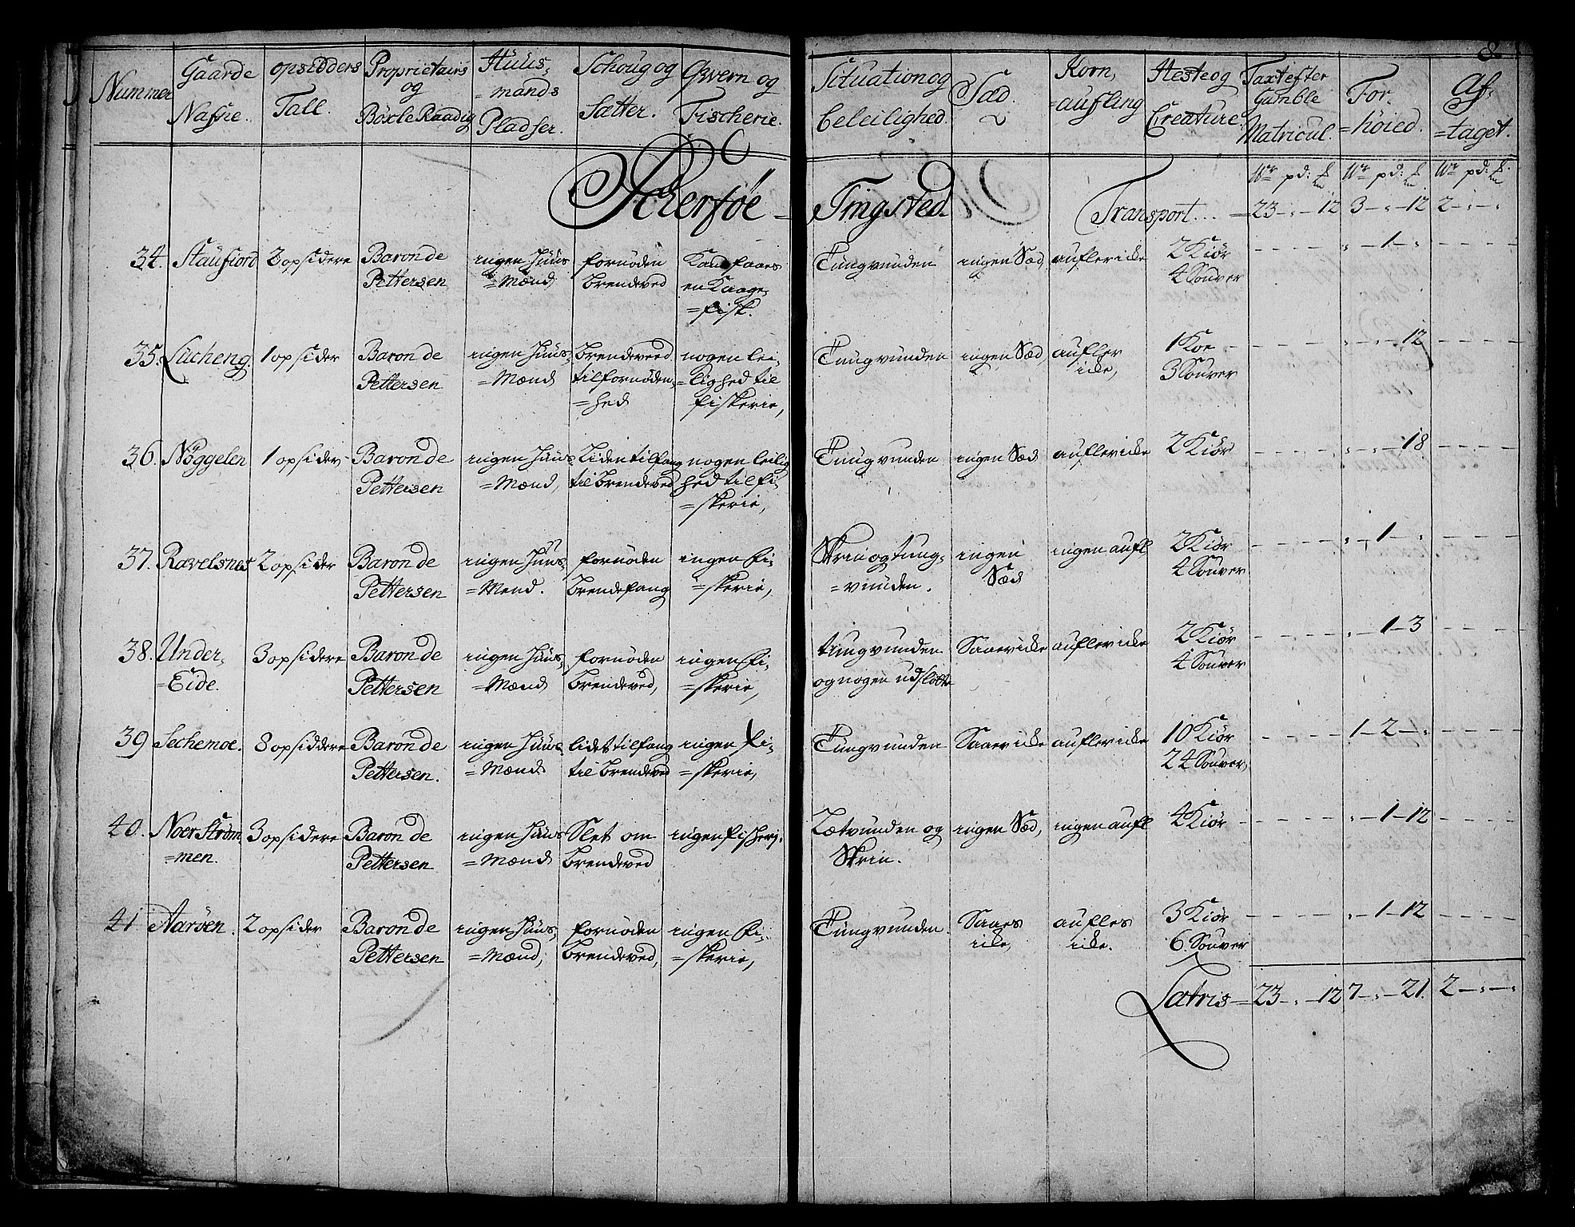 8.
Nummer
Gaarde Nafne.
opsidders Tall.
Proprietairs og Böxle Raadig
Huus, =mands Pladser.
Schoug og Sætter.
Qvern og Fischerie.
Situation og beleilighed.
Sæd.
Korn, =aufling
Heste og Creature.
Taxt efter Gamble Matricul
For, =høied.
Af, =taget.
Scherføe Tingsted.
Wr pd: Wr pd: Wr pd:
Transport... =23-„-12 3-„-12 2-„-„
34. Staufiord 3 opsidere Baron de Pettersen ingen Huus =Mænd fornøden brendeved en Kaage =fisk. Tungvunden ingen Sæd, aufler icke 2 Kiør 4 Souver „-1-„
35. Lucheng. 1 opsider Baron de Pettersen ingen Huus, =Mænd brendeveed til fornøden, =hed nogen lei, =lighed til fiskerie, Tungvunden ingen Sæd, aufler icke, 1 Koe 3 Souver „-„-12
36. Nøggelen 1 opsider Baron de Pettersen ingen Huus =Mænd, Liden tilfang til brendeved nogen leilig hed til fi, =skerie, Tungvunden ingen Sæd aufler icke 2 Kiør „-„-18
37. Ravelsnes 2 opsider Baron de Pettersen ingen Huus, =Mend. fornøden brendefang ingen fi, =skerie, Skrin og tung, =vunden. ingen Sæd ingen aufl 2 Kiør 4 Souver „-1-„
38. Under, =Eide. 3 opsidere Baron de Pettersen ingen Huus, =Mænd fornøden brendeved, ingen fi, =skerie, tungvunden og nogen udslotte Saaer icke aufler icke 2 Kiør 4 Souver „-1-3
39 Sechemoe. 8 opsiddere Baron de Pettersen. ingen Huus, =Mænd lidet tilfang til brendeved ingen fi, =skerie, Tungvunden Saaer icke aufler icke 10 Kiør 24 Souver, 1-2-„
40. Noer Strøm =men. 3 opsidere Baron de Pettersen ingen Huus =Mænd Slet om brendeved ingen fischeri. Letvunden og Skrin. ingen Sæd, ingen aufl 4 Kiør „-1-12
41 Aarøen. 2 opsider Baron de Pettersen ingen Huus, =Mænd, fornøden brendeved, ingen fi, =skerie, Tungvunden. Saaes icke, aufles icke. 3 Kiør 6 Souver „-1-12
Latris =23-„-12 7-„-21. 2-„-„